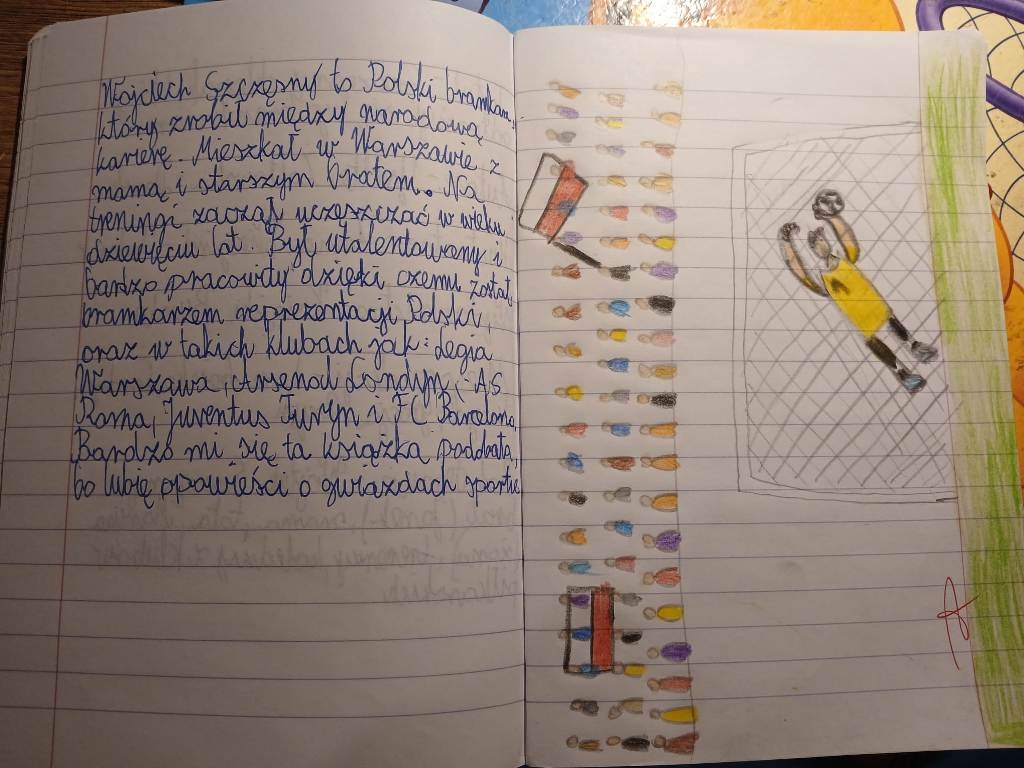 Wojciech Szczęsny to Polski bramkarz,
który zrobił między narodową
karierę. Mieszkał w Warszawie z
mamą i starszym bratem. Na
treningi zaczął uczęszczać w wieku
dziewięciu lat. Był utalentowany i
bardzo pracowity dzięki czemu został
bramkarzem reprezentacji Polski,
oraz w takich klubach jak: Legia
Warszawa, Arsenal Londyn, AS
Roma, Juventus Turyn i FC Barcelona.
Bardzo mi się ta książka podobała,
bo lubię opowieści o gwiazdach